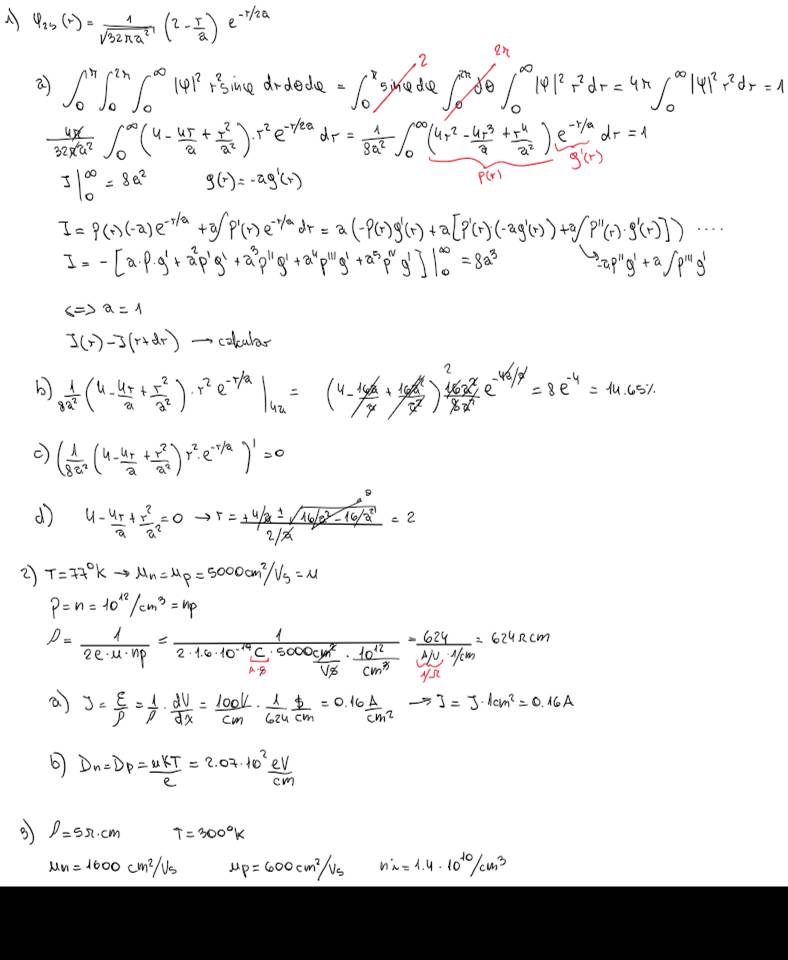 1) φ₂ₛ(r) = 1/√(32πa²) (2 - r/a) e^(-r/2a)
a) ∫₀^π ∫₀^2π ∫₀^∞ |φ|² r² sinφ dr dθ dφ = ∫₀^π sinφ dφ ∫₀^2π dθ ∫₀^∞ |φ|² r² dr = 4π ∫₀^∞ |φ|² r² dr = 1
2 2π
4π/32πa² ∫₀^∞ (4 - 4r/a + r²/a²) · r² e^(-r/2a) dr = 1/8a² ∫₀^∞ (4r² - 4r³/a + r⁴/a²) e^(-r/a) dr = 1
P(r) g'(r)
I |₀^∞ = 8a² g(r) = -ag'(r)
I = P(r)(-a)e^(-r/a) + a∫P'(r)e^(-r/a) dr = a(-P(r)g'(r) + a[P'(r)·(-ag'(r)) + a∫P''(r)·g'(r)]) ....
I = -[a·P·g' + a²p'g' + a³p''g' + a⁴p'''g' + a⁵pᴵⱽg'] |₀^∞ = 8a³ -ap''g' + a∫p'''g'
<=> a = 1
I(r) - I(r+dr) → calcular
b) 1/8a² (4 - 4r/a + r²/a²) · r² e^(-r/a) |₄ₐ = (4 - 16a/a + 16a²/a²) 16a²/8a² 2 e^(-4a/a) = 8e^(-4) = 14.65%
c) (1/8a² (4 - 4r/a + r²/a²) r² · e^(-r/a))' = 0
d) 4 - 4r/a + r²/a² = 0 → r = (+4/a ± √(16/a² - 16/a²))/(2/a) = 2
0
2) T = 77°K → μn = μp = 5000 cm²/Vs = μ
P = n = 10¹²/cm³ = np
ρ = 1/(2e·μ·np) = 1/(2·1.6·10⁻¹⁹ C · 5000 cm²/Vs · 10¹²/cm³) = 624/(A/V · 1/cm) = 624 Ωcm
A·s 1/Ω
a) J = ε/ρ = 1/ρ · dV/dx = 100V/cm · 1/624 $/cm = 0.16 A/cm² → I = J·1cm² = 0.16A
b) Dn = Dp = μKT/e = 2.07·10² eV/cm
3) ρ = 5Ω·cm T = 300°K
μn = 1600 cm²/Vs μp = 600 cm²/Vs ni = 1.4·10¹⁰/cm³